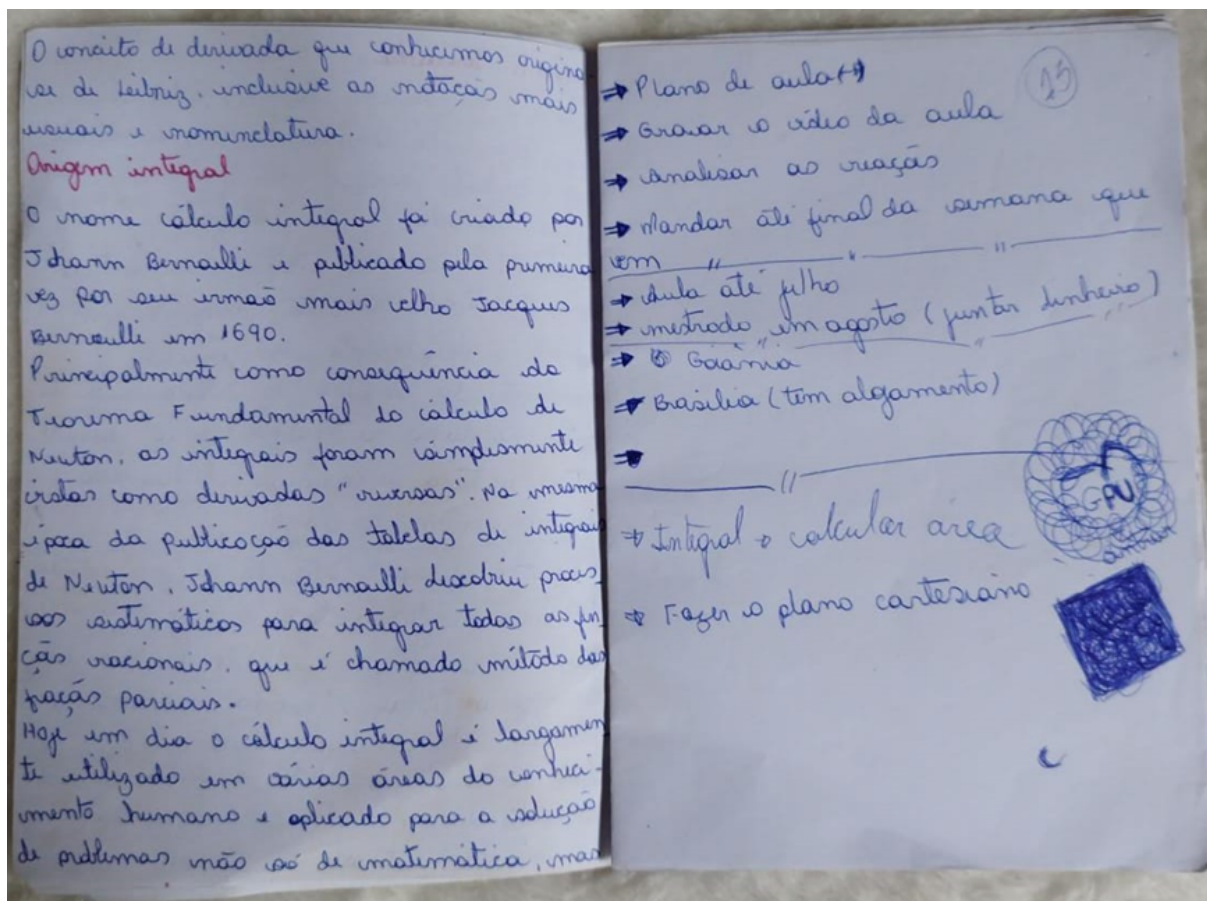 O conceito de derivada que conhecemos origina
se de Leibniz, inclusive as notações mais
usuais e nomenclatura.
Origem integral
O nome cálculo integral foi criado por
Johann Bernoulli e publicado pela primeira
vez por seu irmão mais velho Jacques
Bernoulli em 1690.
Principalmente como consequência do
Teorema Fundamental do cálculo de
Newton, as integrais foram simplesmente
vistas como derivadas "reversas". Na mesma
época da publicação das tabelas de integrais
de Newton, Johann Bernoulli descobriu proces
sos sistemáticos para integrar todas as fun
ções racionais, que é chamado método das
frações parciais.
Hoje em dia o cálculo integral é largamen
te utilizado em várias áreas do conheci-
mento humano e aplicado para a solução
de problemas não só de matemática, mas
25
⇒ Plano de aula
⇒ Gravar o vídeo da aula
⇒ Analisar as reações
⇒ Mandar até final da semana que
vem
⇒ Aula até julho
⇒ mestrado em agosto (juntar dinheiro)
⇒ Goiânia
⇒ Brasília (tem alojamento)
⇒ Integral → calcular area
⇒ Fazer o plano cartesiano